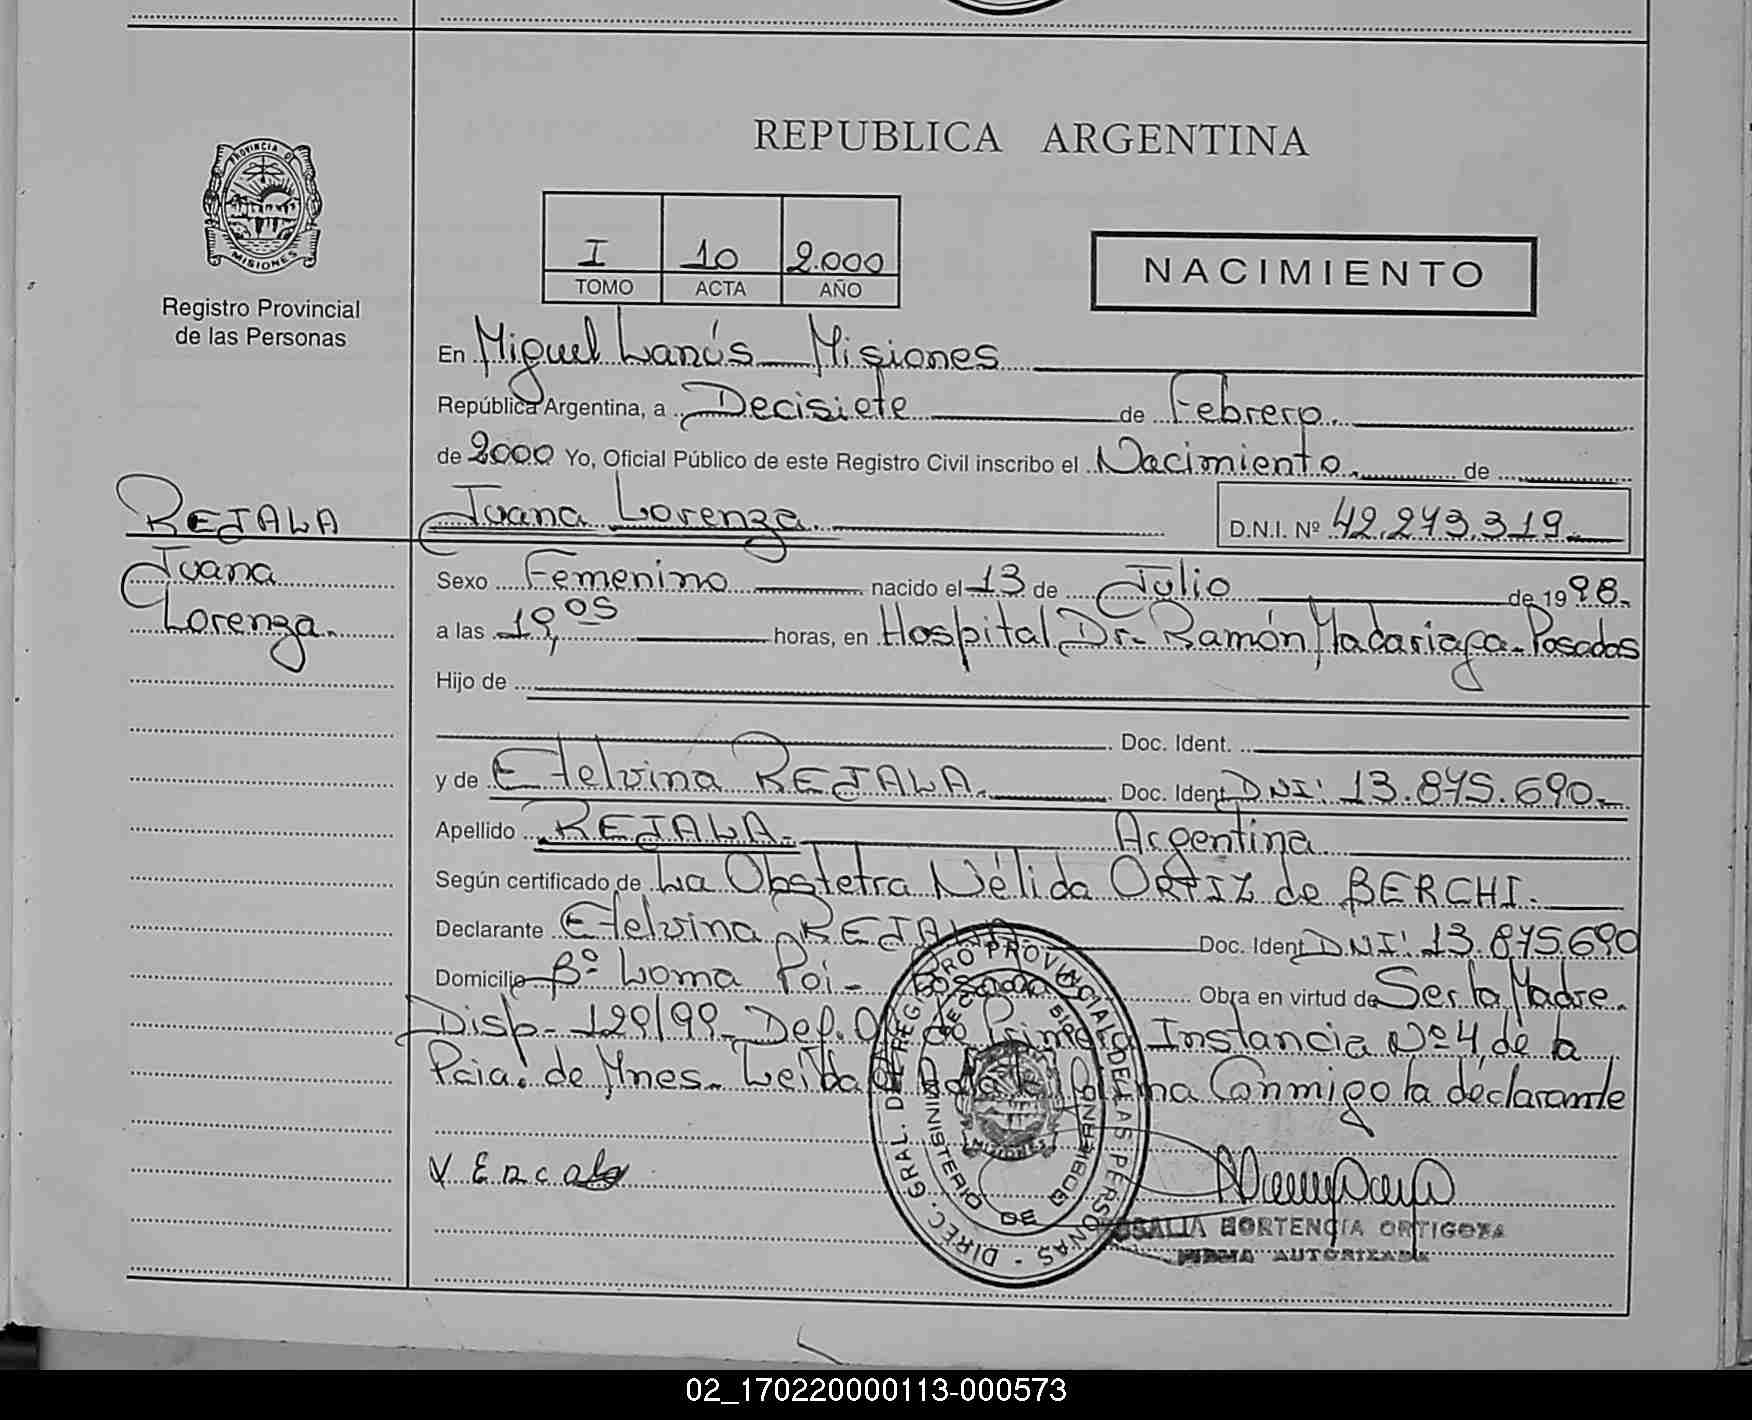 REPUBLICA ARGENTINA
PROVINCIA DE
MISIONES
Registro Provincial
de las Personas
I 10 2.000
TOMO ACTA AÑO
NACIMIENTO
En Miguel Lanús Misiones
República Argentina, a Decisiete de Febrero.
de 2000 Yo, Oficial Público de este Registro Civil inscribo el Nacimiento. de
REJALA
Juana
Lorenza.
Juana Lorenza. D.N.I. Nº 42.273.319.
Sexo Femenino nacido el 13 de Julio de 1998.
a las 19,05 horas, en Hospital Dr. Ramón Madariaga. Posadas
Hijo de
Doc. Ident.
y de Etelvina REJALA. Doc. Ident DNI: 13.875.690.
Apellido REJALA. Argentina
Según certificado de La Obstetra Nélida ORTIZ de BERCHI.
Declarante Etelvina REJALA Doc. Ident DNI: 13.875.690
Domicilio Bº Loma Poi - Posadas Obra en virtud de Ser la Madre.
Disp. 129/99 Def. de Primera Instancia Nº 4, de la
Pcia. de Mnes. Leída Acta Firma Conmigo la declarante
DIREC. GRAL. DEL REGISTRO PROVINCIAL DE LAS PERSONAS
MINISTERIO DE GOBIERNO
MISIONES
ROSALIA HORTENCIA ORTIGOZA
FIRMA AUTORIZADA
02_170220000113-000573